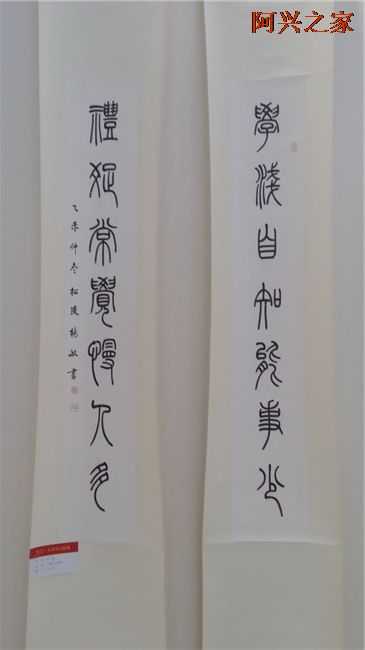 阿兴之家
學淺自知能事少
禮疎常覺慢人多
乙未仲冬松陵楊敏書